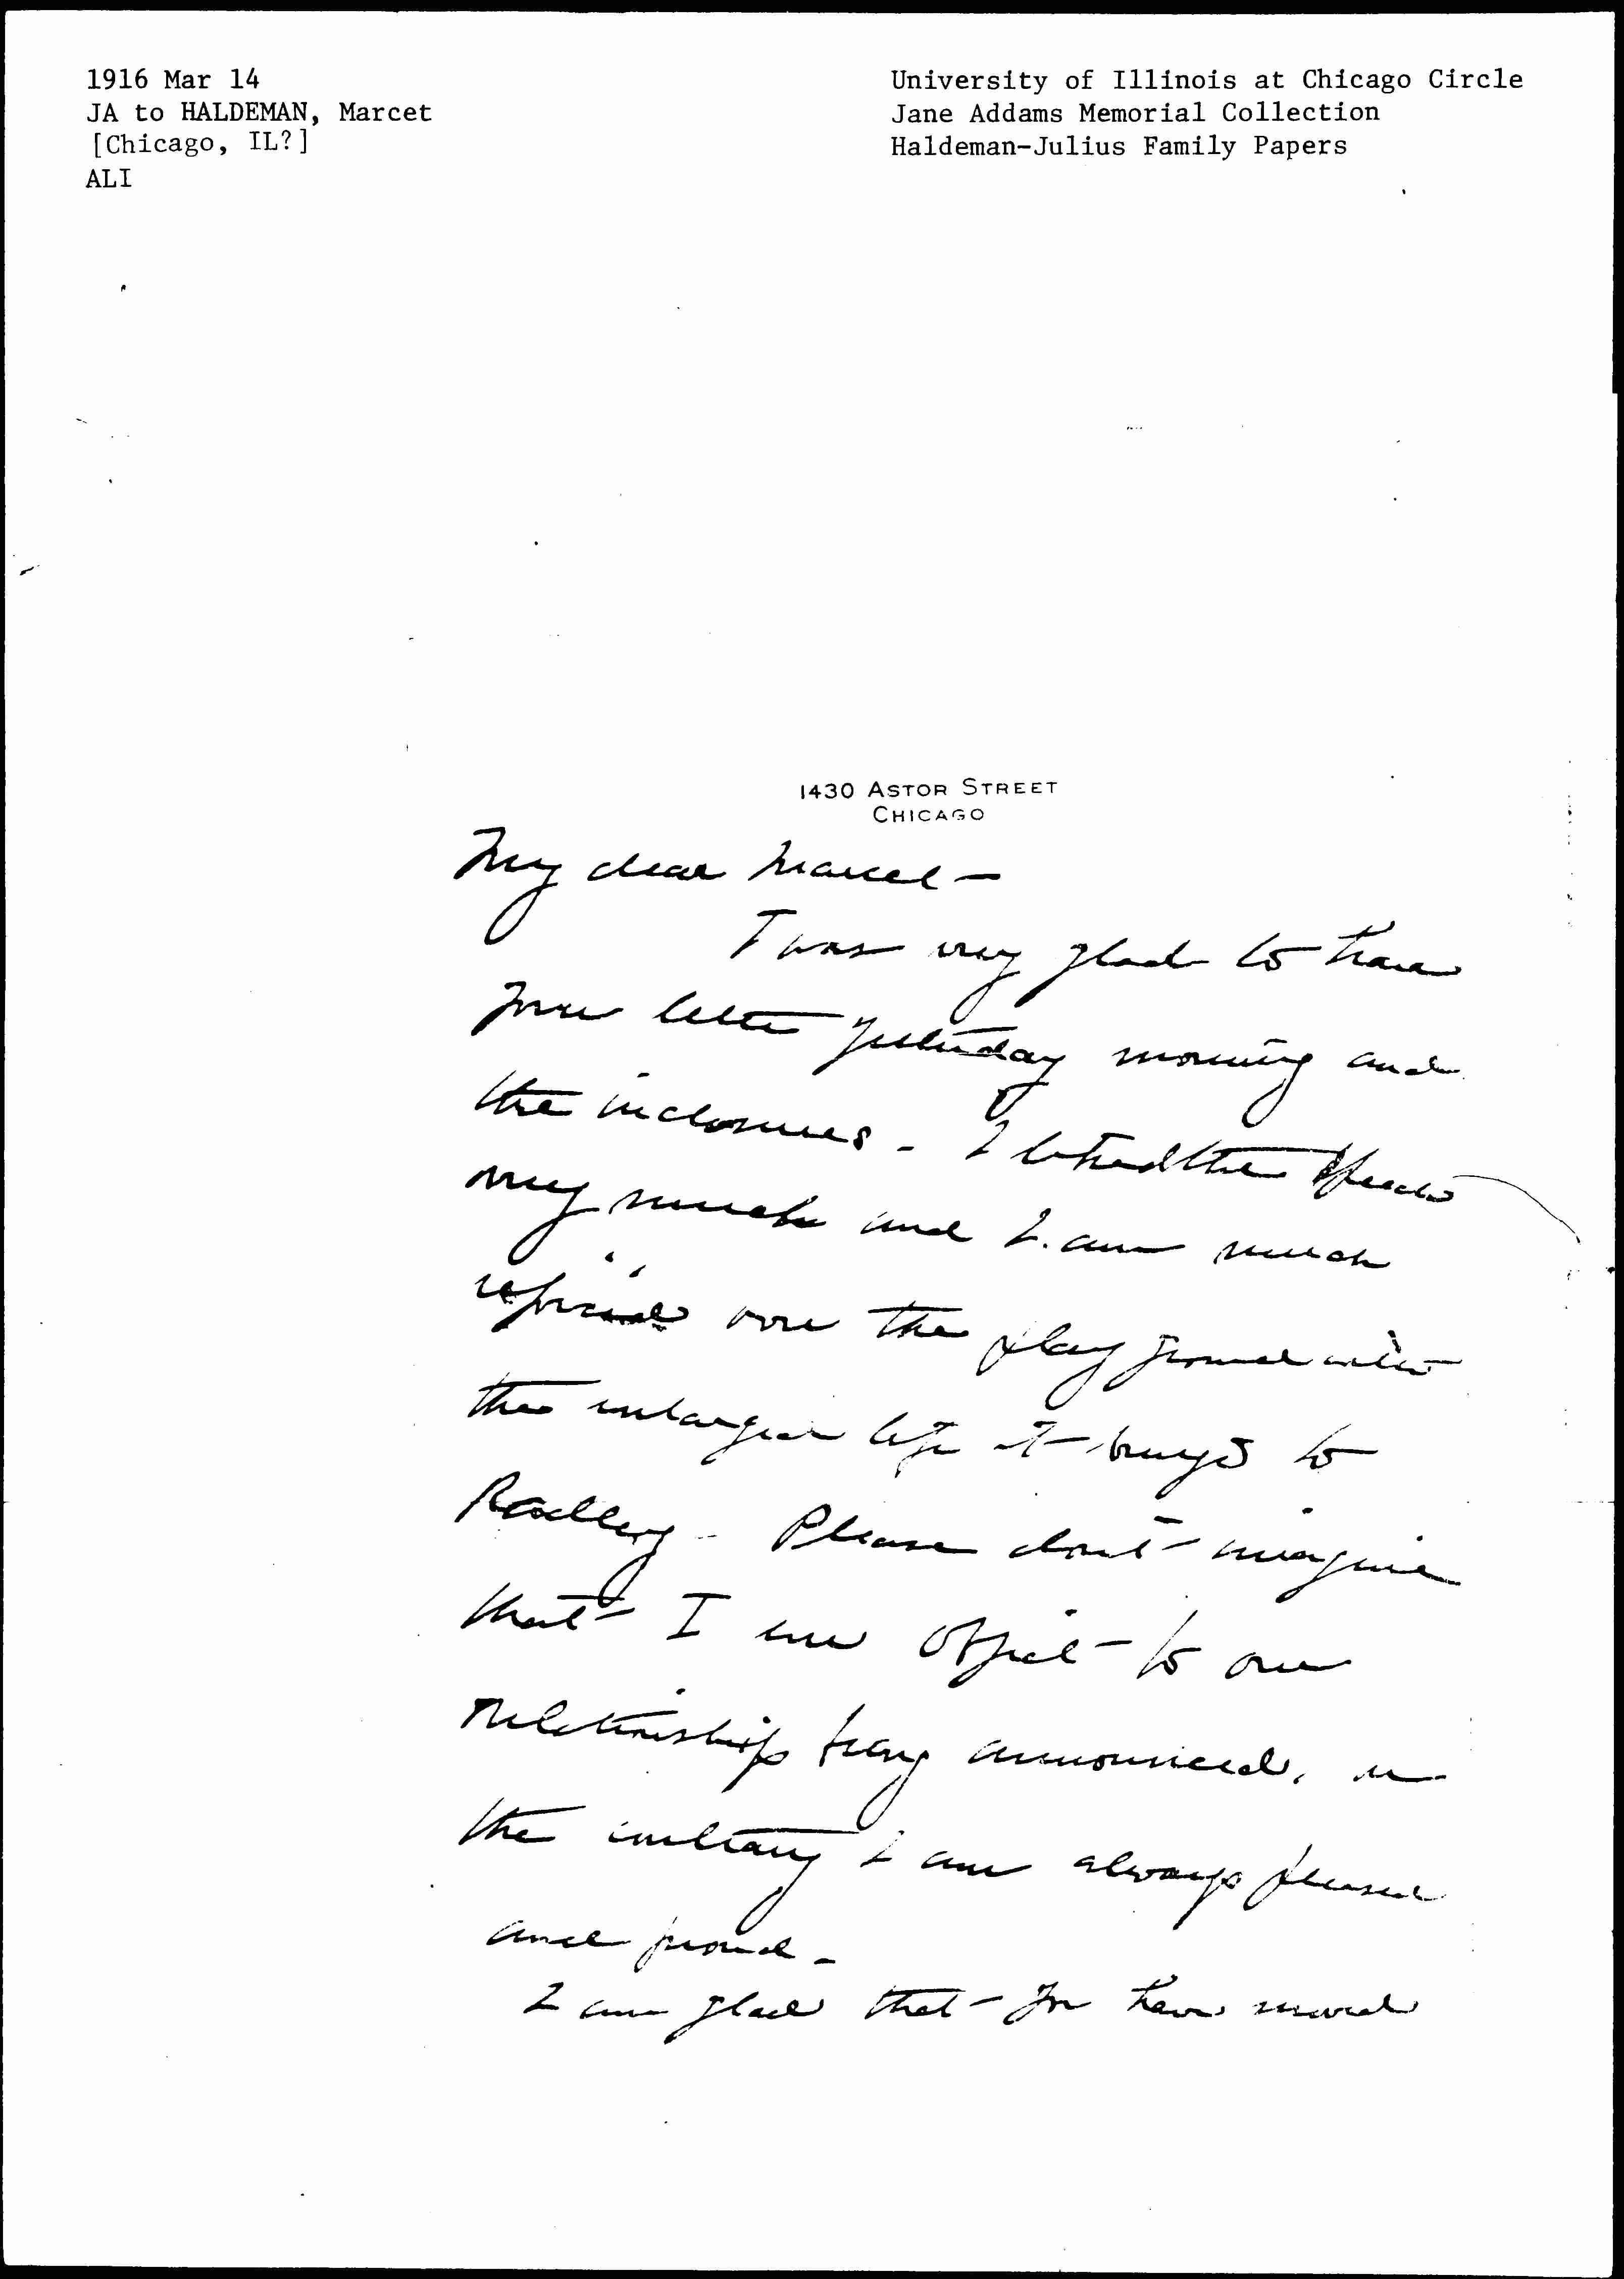 1916 Mar 14
JA to HALDEMAN, Marcet
[Chicago, IL?]
ALI
University of Illinois at Chicago Circle
Jane Addams Memorial Collection
Haldeman-Julius Family Papers
1430 ASTOR STREET
CHICAGO
My dear Marcet —
I was very glad to have
your letter yesterday morning and
the inclosures - I liked the speech
very much and I am much
rejoiced over the play ground with
the enlarged life it brings to
Radley - Please don't imagine
that I ever object to our
relationship being announced, on
the contrary I am always pleased
and proud -
I am glad that you have moved